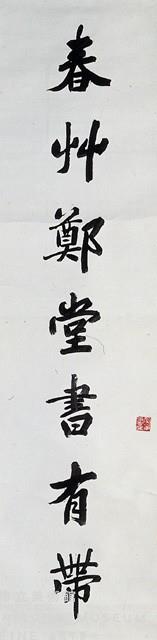 春艸鄭堂書有帶